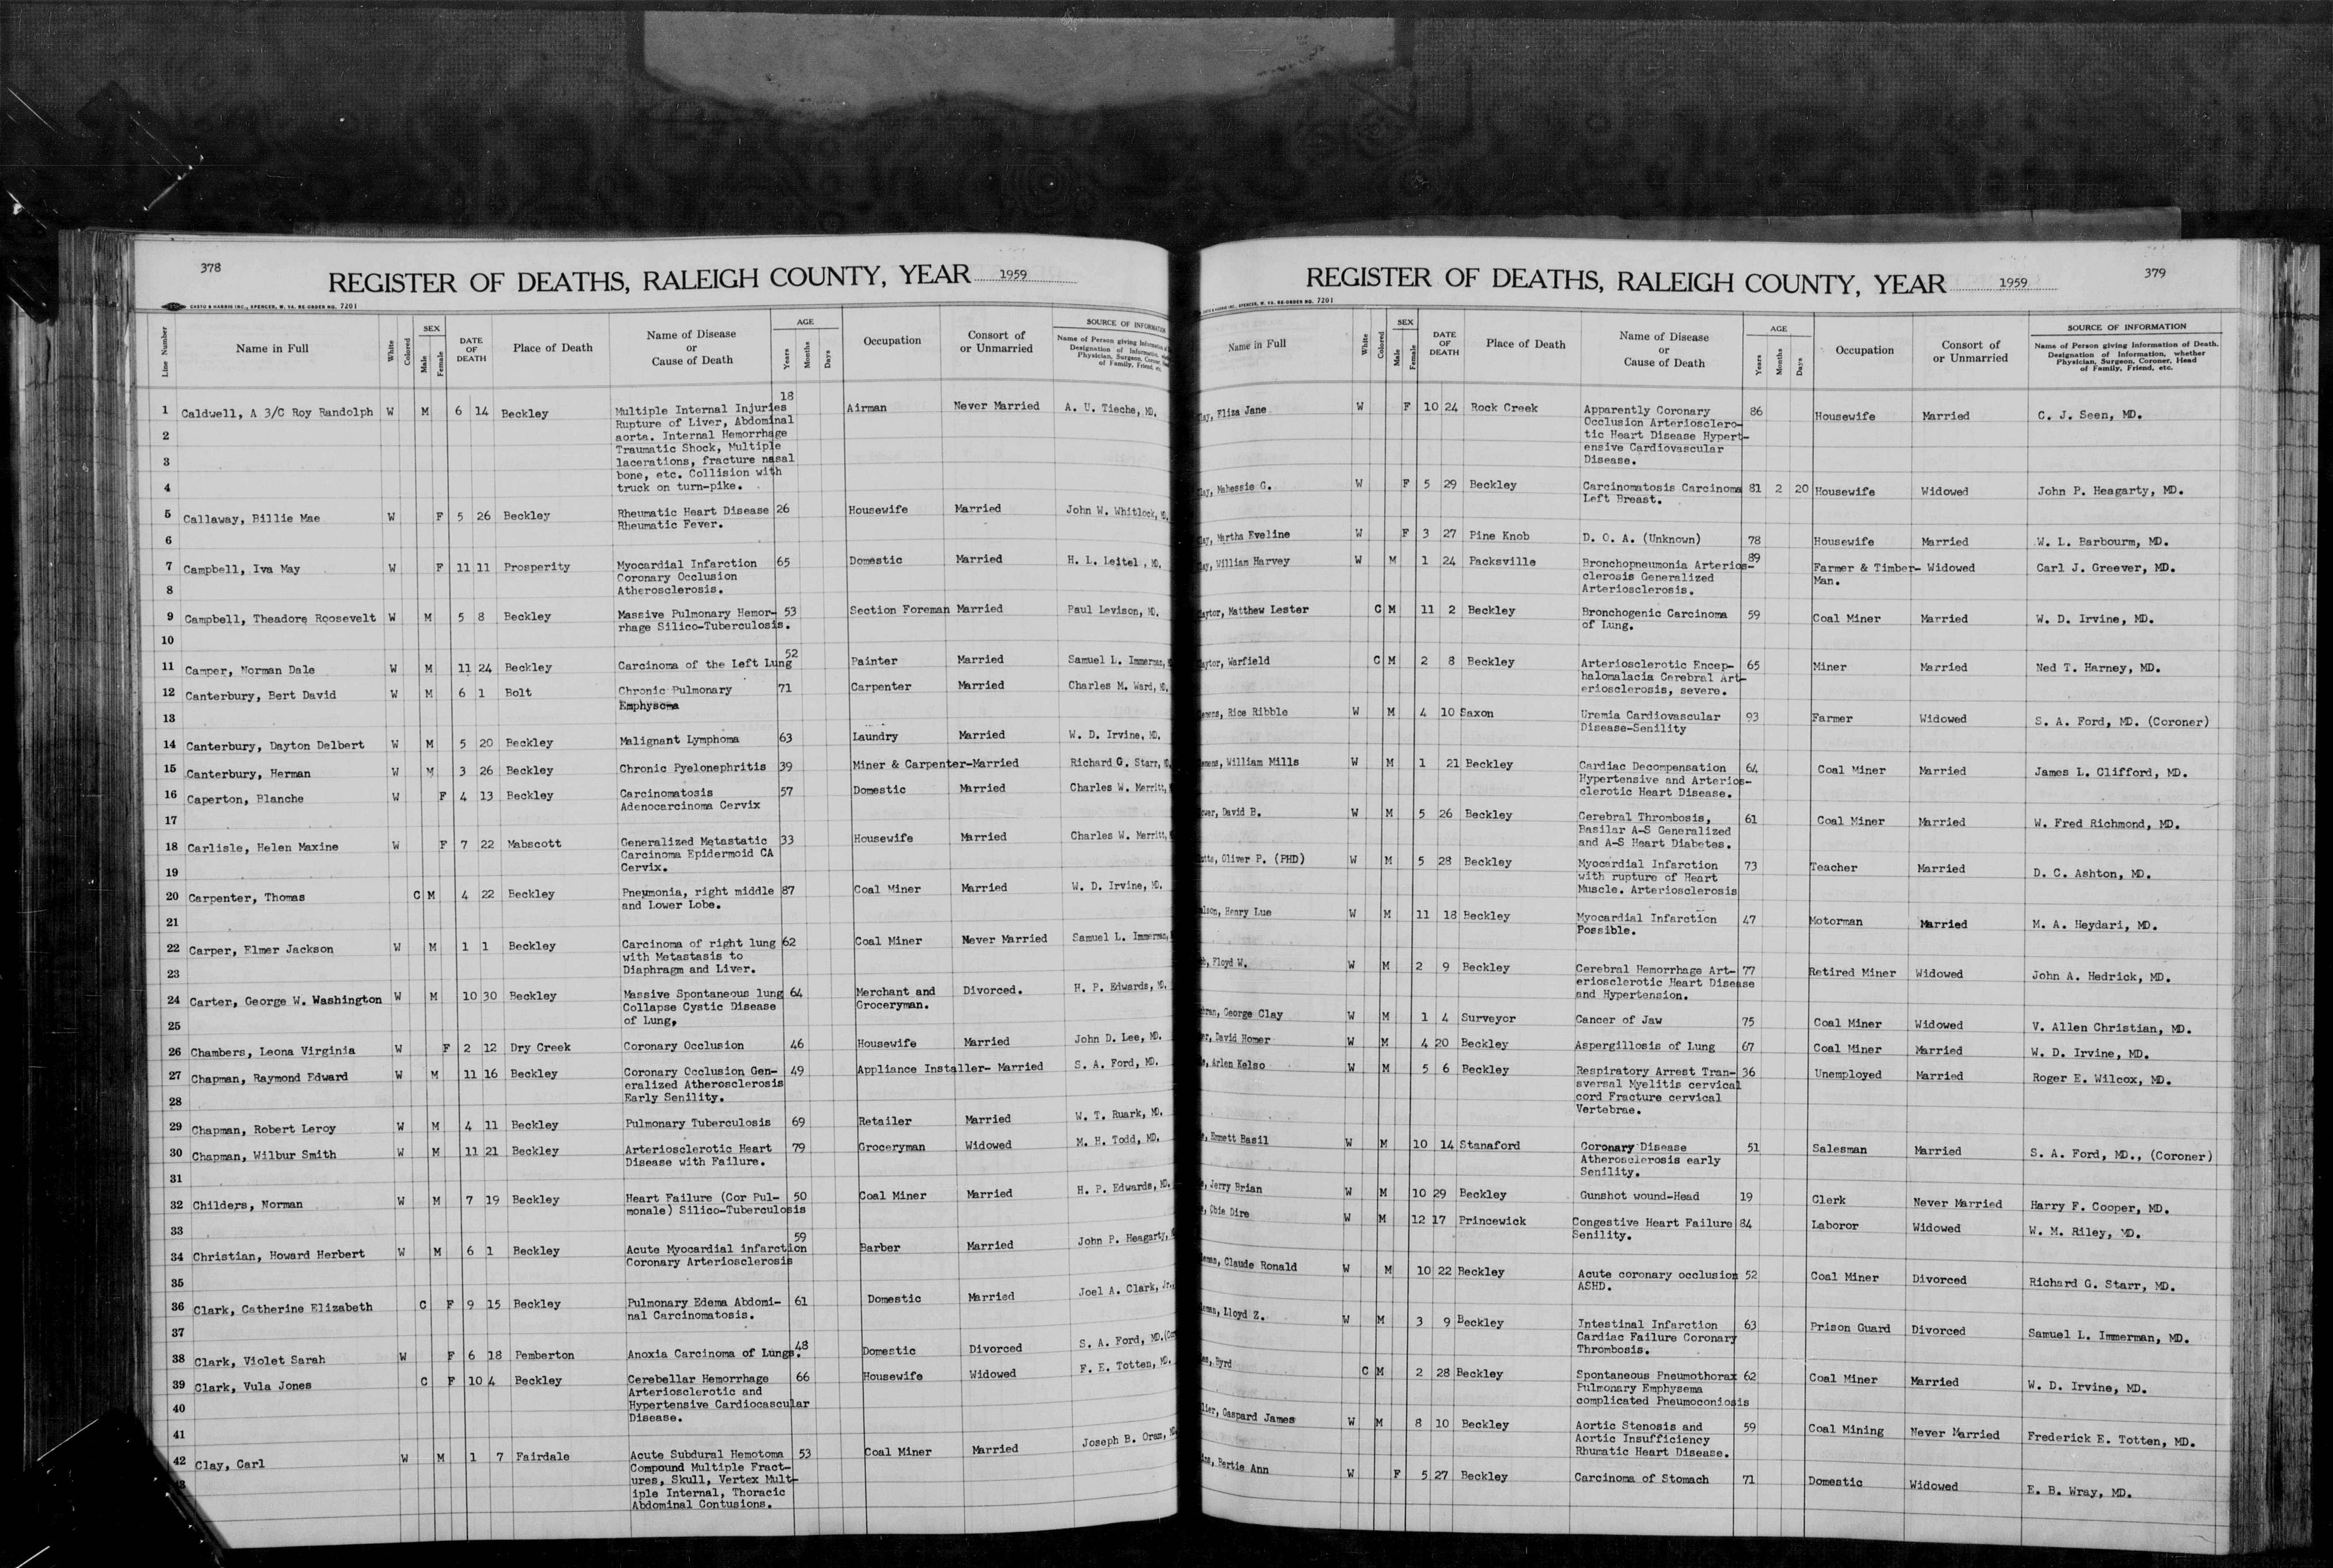 378
REGISTER OF DEATHS, RALEIGH COUNTY, YEAR 1959
CASTO & HARRIS INC., SPENCER, W. VA. RE-ORDER NO. 7201
Line Number Name in Full White Colored SEX Male Female DATE OF DEATH Place of Death Name of Disease or Cause of Death AGE Years Months Days Occupation Consort of or Unmarried SOURCE OF INFORMATION
Name of Person giving Information
Designation of Information,
Physician, Surgeon, Coroner,
of Family, Friend, etc.
1 Caldwell, A 3/C Roy Randolph W M 6 14 Beckley Multiple Internal Injuries 18 Airman Never Married A. U. Tieche, MD.
Rupture of Liver, Abdominal
2 aorta. Internal Hemorrhage
Traumatic Shock, Multiple
3 lacerations, fracture nasal
bone, etc. Collision with
4 truck on turn-pike.
5 Callaway, Billie Mae W F 5 26 Beckley Rheumatic Heart Disease 26 Housewife Married John W. Whitlock, MD.
Rheumatic Fever.
6
7 Campbell, Iva May W F 11 11 Prosperity Myocardial Infarction 65 Domestic Married H. L. Leitel, MD.
Coronary Occlusion
8 Atherosclerosis.
9 Campbell, Theadore Roosevelt W M 5 8 Beckley Massive Pulmonary Hemor- 53 Section Foreman Married Paul Levison, MD.
rhage Silico-Tuberculosis.
10
11 Camper, Norman Dale W M 11 24 Beckley Carcinoma of the Left Lung 52 Painter Married Samuel L. Immerman,
12 Canterbury, Bert David W M 6 1 Bolt Chronic Pulmonary 71 Carpenter Married Charles M. Ward, MD.
Emphysema
13
14 Canterbury, Dayton Delbert W M 5 20 Beckley Malignant Lymphoma 63 Laundry Married W. D. Irvine, MD.
15 Canterbury, Herman W M 3 26 Beckley Chronic Pyelonephritis 39 Miner & Carpenter-Married Richard G. Starr, MD.
16 Caperton, Blanche W F 4 13 Beckley Carcinomatosis 57 Domestic Married Charles W. Merritt,
Adenocarcinoma Cervix
17
18 Carlisle, Helen Maxine W F 7 22 Mabscott Generalized Metastatic 33 Housewife Married Charles W. Merritt,
Carcinoma Epidermoid CA
19 Cervix.
20 Carpenter, Thomas C M 4 22 Beckley Pneumonia, right middle 87 Coal Miner Married W. D. Irvine, MD.
and Lower Lobe.
21
22 Carper, Elmer Jackson W M 1 1 Beckley Carcinoma of right lung 62 Coal Miner Never Married Samuel L. Immerman,
with Metastasis to
23 Diaphragm and Liver.
24 Carter, George W. Washington W M 10 30 Beckley Massive Spontaneous lung 64 Merchant and Divorced. H. P. Edwards, MD.
Collapse Cystic Disease Groceryman.
25 of Lung,
26 Chambers, Leona Virginia W F 2 12 Dry Creek Coronary Occlusion 46 Housewife Married John D. Lee, MD.
27 Chapman, Raymond Edward W M 11 16 Beckley Coronary Occlusion Gen- 49 Appliance Installer- Married S. A. Ford, MD.
eralized Atherosclerosis
28 Early Senility.
29 Chapman, Robert Leroy W M 4 11 Beckley Pulmonary Tuberculosis 69 Retailer Married W. T. Ruark, MD.
30 Chapman, Wilbur Smith W M 11 21 Beckley Arteriosclerotic Heart 79 Groceryman Widowed M. H. Todd, MD.
Disease with Failure.
31
32 Childers, Norman W M 7 19 Beckley Heart Failure (Cor Pul- 50 Coal Miner Married H. P. Edwards, MD.
monale) Silico-Tuberculosis
33
34 Christian, Howard Herbert W M 6 1 Beckley Acute Myocardial infarction 59 Barber Married John P. Heagarty,
Coronary Arteriosclerosis
35
36 Clark, Catherine Elizabeth C F 9 15 Beckley Pulmonary Edema Abdomi- 61 Domestic Married Joel A. Clark, Jr.,
nal Carcinomatosis.
37
38 Clark, Violet Sarah W F 6 18 Pemberton Anoxia Carcinoma of Lungs. 48 Domestic Divorced S. A. Ford, MD.
39 Clark, Vula Jones C F 10 4 Beckley Cerebellar Hemorrhage 66 Housewife Widowed F. E. Totten, MD.
Arteriosclerotic and
40 Hypertensive Cardiocascular
Disease.
41
42 Clay, Carl W M 1 7 Fairdale Acute Subdural Hemotoma 53 Coal Miner Married Joseph B. Oram,
Compound Multiple Fract-
ures, Skull, Vertex Mult-
iple Internal, Thoracic
Abdominal Contusions.
379
REGISTER OF DEATHS, RALEIGH COUNTY, YEAR 1959
SPENCER, W. VA. RE-ORDER NO. 7201
Name in Full White Colored SEX Male Female DATE OF DEATH Place of Death Name of Disease or Cause of Death AGE Years Months Days Occupation Consort of or Unmarried SOURCE OF INFORMATION
Name of Person giving Information of Death.
Designation of Information, whether
Physician, Surgeon, Coroner, Head
of Family, Friend, etc.
Eliza Jane W F 10 24 Rock Creek Apparently Coronary 86 Housewife Married C. J. Seen, MD.
Occlusion Arteriosclero-
tic Heart Disease Hypert-
ensive Cardiovascular
Disease.
Mahessie G. W F 5 29 Beckley Carcinomatosis Carcinoma 81 2 20 Housewife Widowed John P. Heagarty, MD.
Left Breast.
Martha Eveline W F 3 27 Pine Knob D. O. A. (Unknown) 78 Housewife Married W. L. Barbourm, MD.
William Harvey W M 1 24 Packsville Bronchopneumonia Arterios- 89 Farmer & Timber- Widowed Carl J. Greever, MD.
clerosis Generalized Man.
Arteriosclerosis.
Matthew Lester C M 11 2 Beckley Bronchogenic Carcinoma 59 Coal Miner Married W. D. Irvine, MD.
of Lung.
Warfield C M 2 8 Beckley Arteriosclerotic Encep- 65 Miner Married Ned T. Harney, MD.
halomalacia Cerebral Art-
eriosclerosis, severe.
Rice Ribble W M 4 10 Saxon Uremia Cardiovascular 93 Farmer Widowed S. A. Ford, MD. (Coroner)
Disease-Senility
William Mills W M 1 21 Beckley Cardiac Decompensation 64 Coal Miner Married James L. Clifford, MD.
Hypertensive and Arterios-
clerotic Heart Disease.
David B. W M 5 26 Beckley Cerebral Thrombosis, 61 Coal Miner Married W. Fred Richmond, MD.
Basilar A-S Generalized
and A-S Heart Diabetes.
Oliver P. (PHD) W M 5 28 Beckley Myocardial Infarction 73 Teacher Married D. C. Ashton, MD.
with rupture of Heart
Muscle. Arteriosclerosis
Henry Lue W M 11 18 Beckley Myocardial Infarction 47 Motorman Married M. A. Heydari, MD.
Possible.
Floyd W. W M 2 9 Beckley Cerebral Hemorrhage Art- 77 Retired Miner Widowed John A. Hedrick, MD.
eriosclerotic Heart Disease
and Hypertension.
George Clay W M 1 4 Surveyor Cancer of Jaw 75 Coal Miner Widowed V. Allen Christian, MD.
David Homer W M 4 20 Beckley Aspergillosis of Lung 67 Coal Miner Married W. D. Irvine, MD.
Arlen Kelso W M 5 6 Beckley Respiratory Arrest Tran- 36 Unemployed Married Roger E. Wilcox, MD.
sversal Myelitis cervical
cord Fracture cervical
Vertebrae.
Emmett Basil W M 10 14 Stanaford Coronary Disease 51 Salesman Married S. A. Ford, MD., (Coroner)
Atherosclerosis early
Senility.
Jerry Brian W M 10 29 Beckley Gunshot wound-Head 19 Clerk Never Married Harry F. Cooper, MD.
Obie Dire W M 12 17 Princewick Congestive Heart Failure 84 Laboror Widowed W. M. Riley, MD.
Senility.
Claude Ronald W M 10 22 Beckley Acute coronary occlusion 52 Coal Miner Divorced Richard G. Starr, MD.
ASHD.
Lloyd Z. W M 3 9 Beckley Intestinal Infarction 63 Prison Guard Divorced Samuel L. Immerman, MD.
Cardiac Failure Coronary
Thrombosis.
Byrd C M 2 28 Beckley Spontaneous Pneumothorax 62 Coal Miner Married W. D. Irvine, MD.
Pulmonary Emphysema
complicated Pneumoconiosis
Gaspard James W M 8 10 Beckley Aortic Stenosis and 59 Coal Mining Never Married Frederick E. Totten, MD.
Aortic Insufficiency
Rhumatic Heart Disease.
Bertie Ann W F 5 27 Beckley Carcinoma of Stomach 71 Domestic Widowed E. B. Wray, MD.